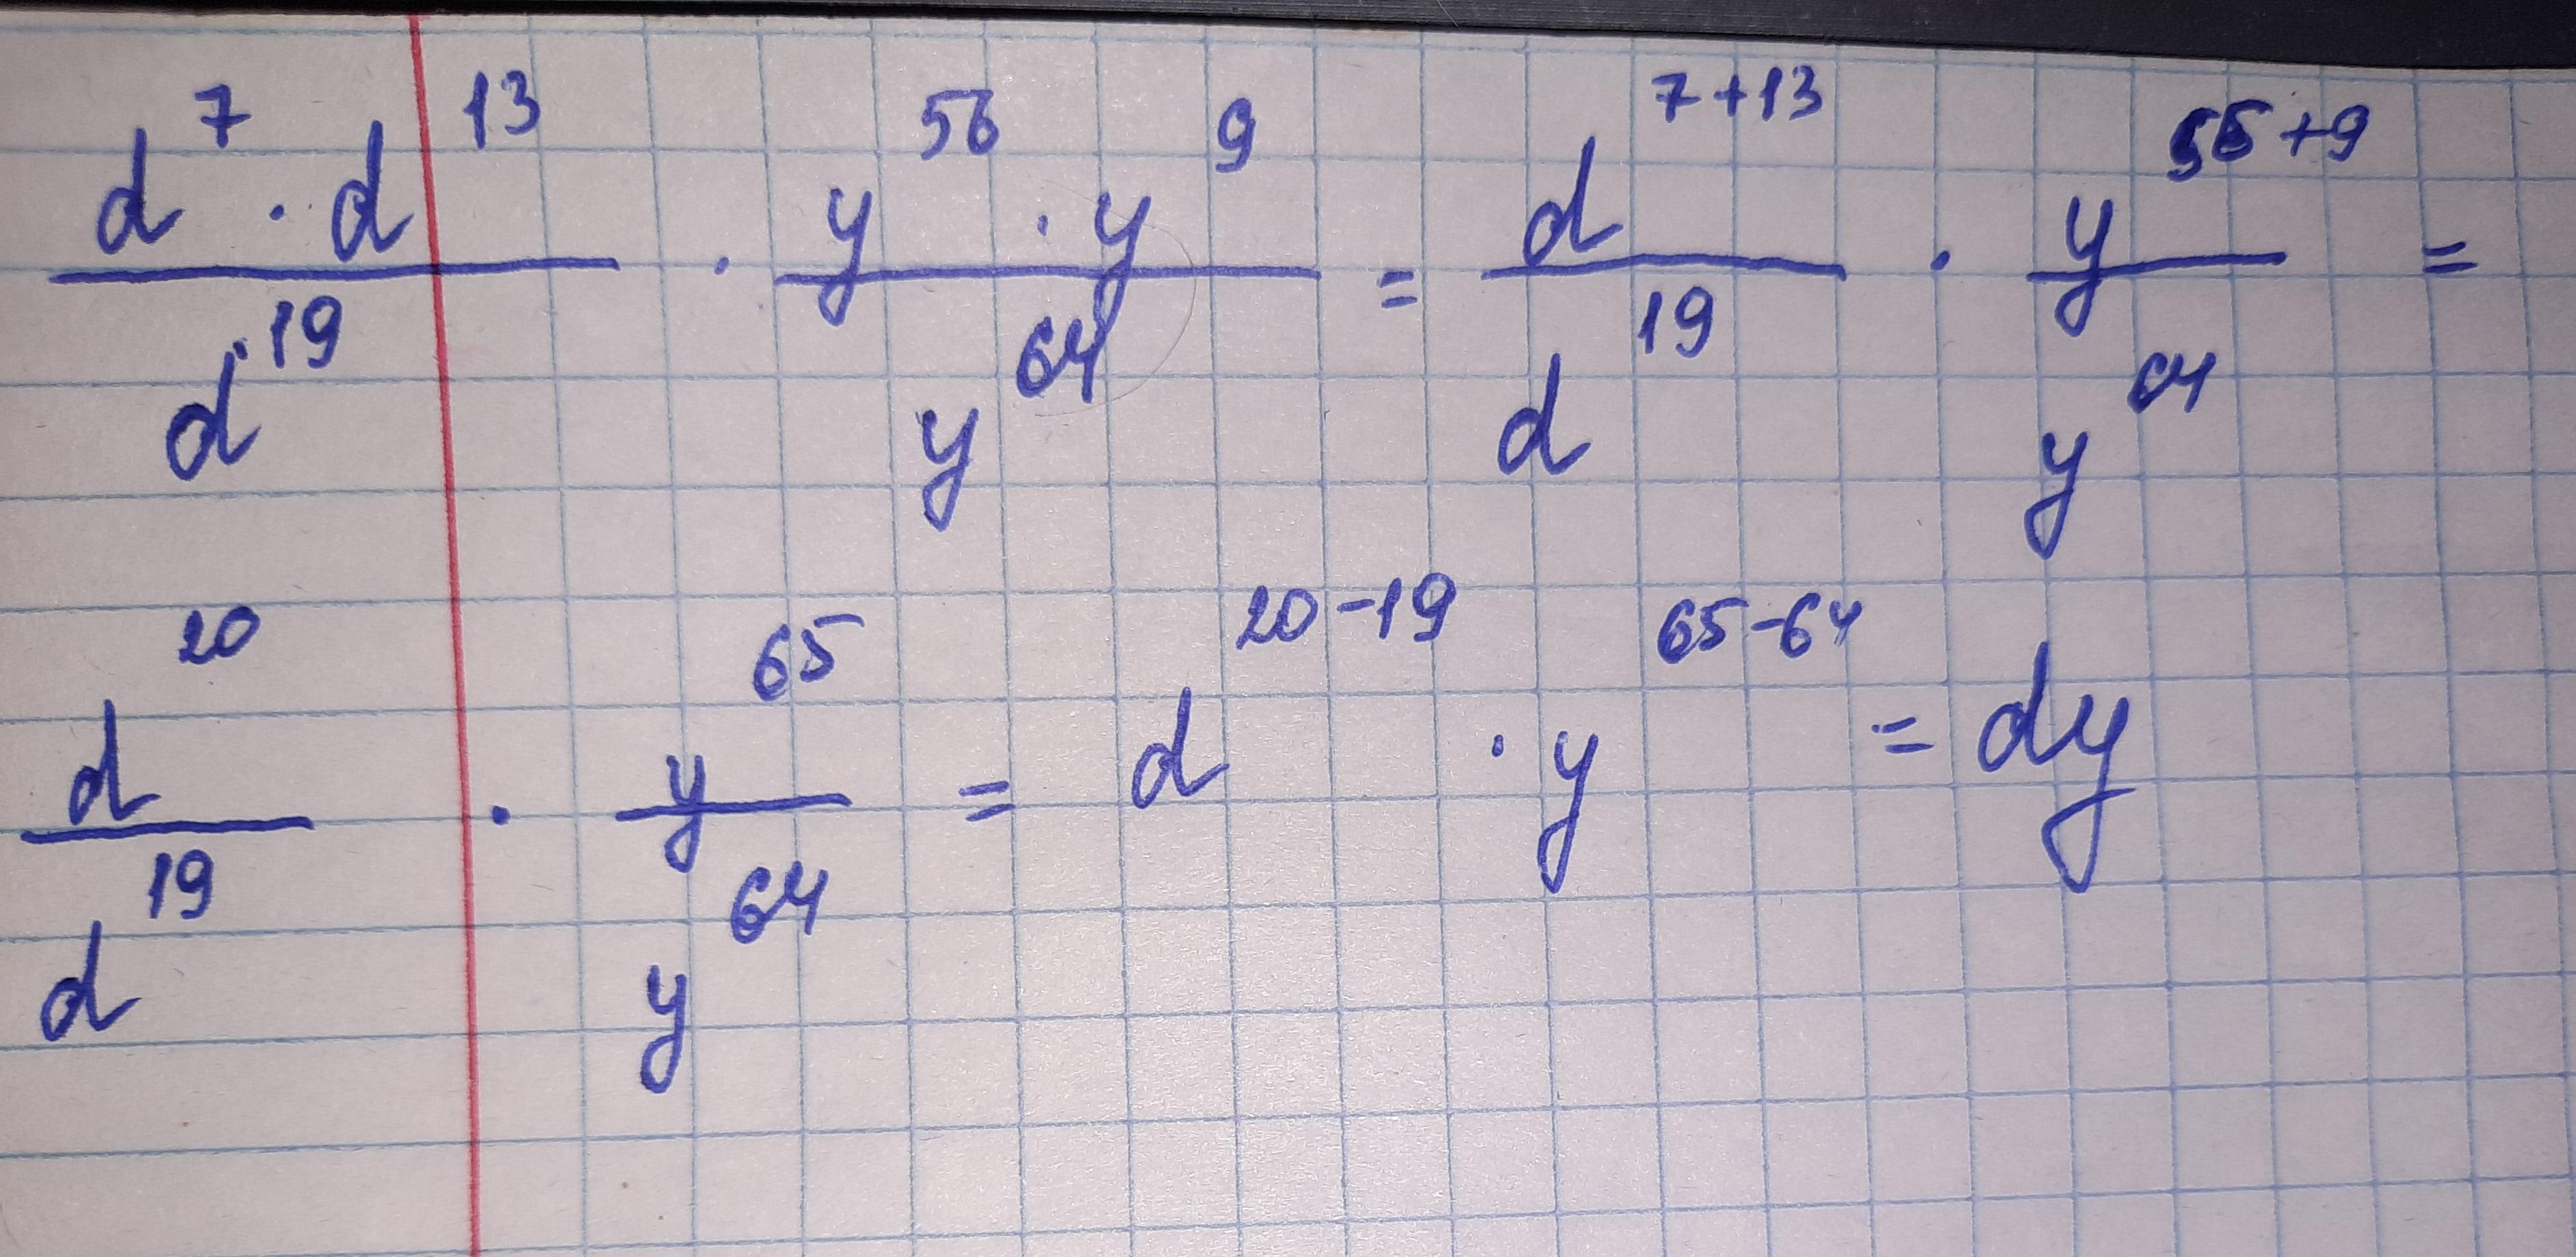 d^7 · d^13 / d^19 · y^56 · y^9 / y^64 = d^7+13 / d^19 · y^56+9 / y^64 =
d^20 / d^19 · y^65 / y^64 = d^20-19 · y^65-64 = dy